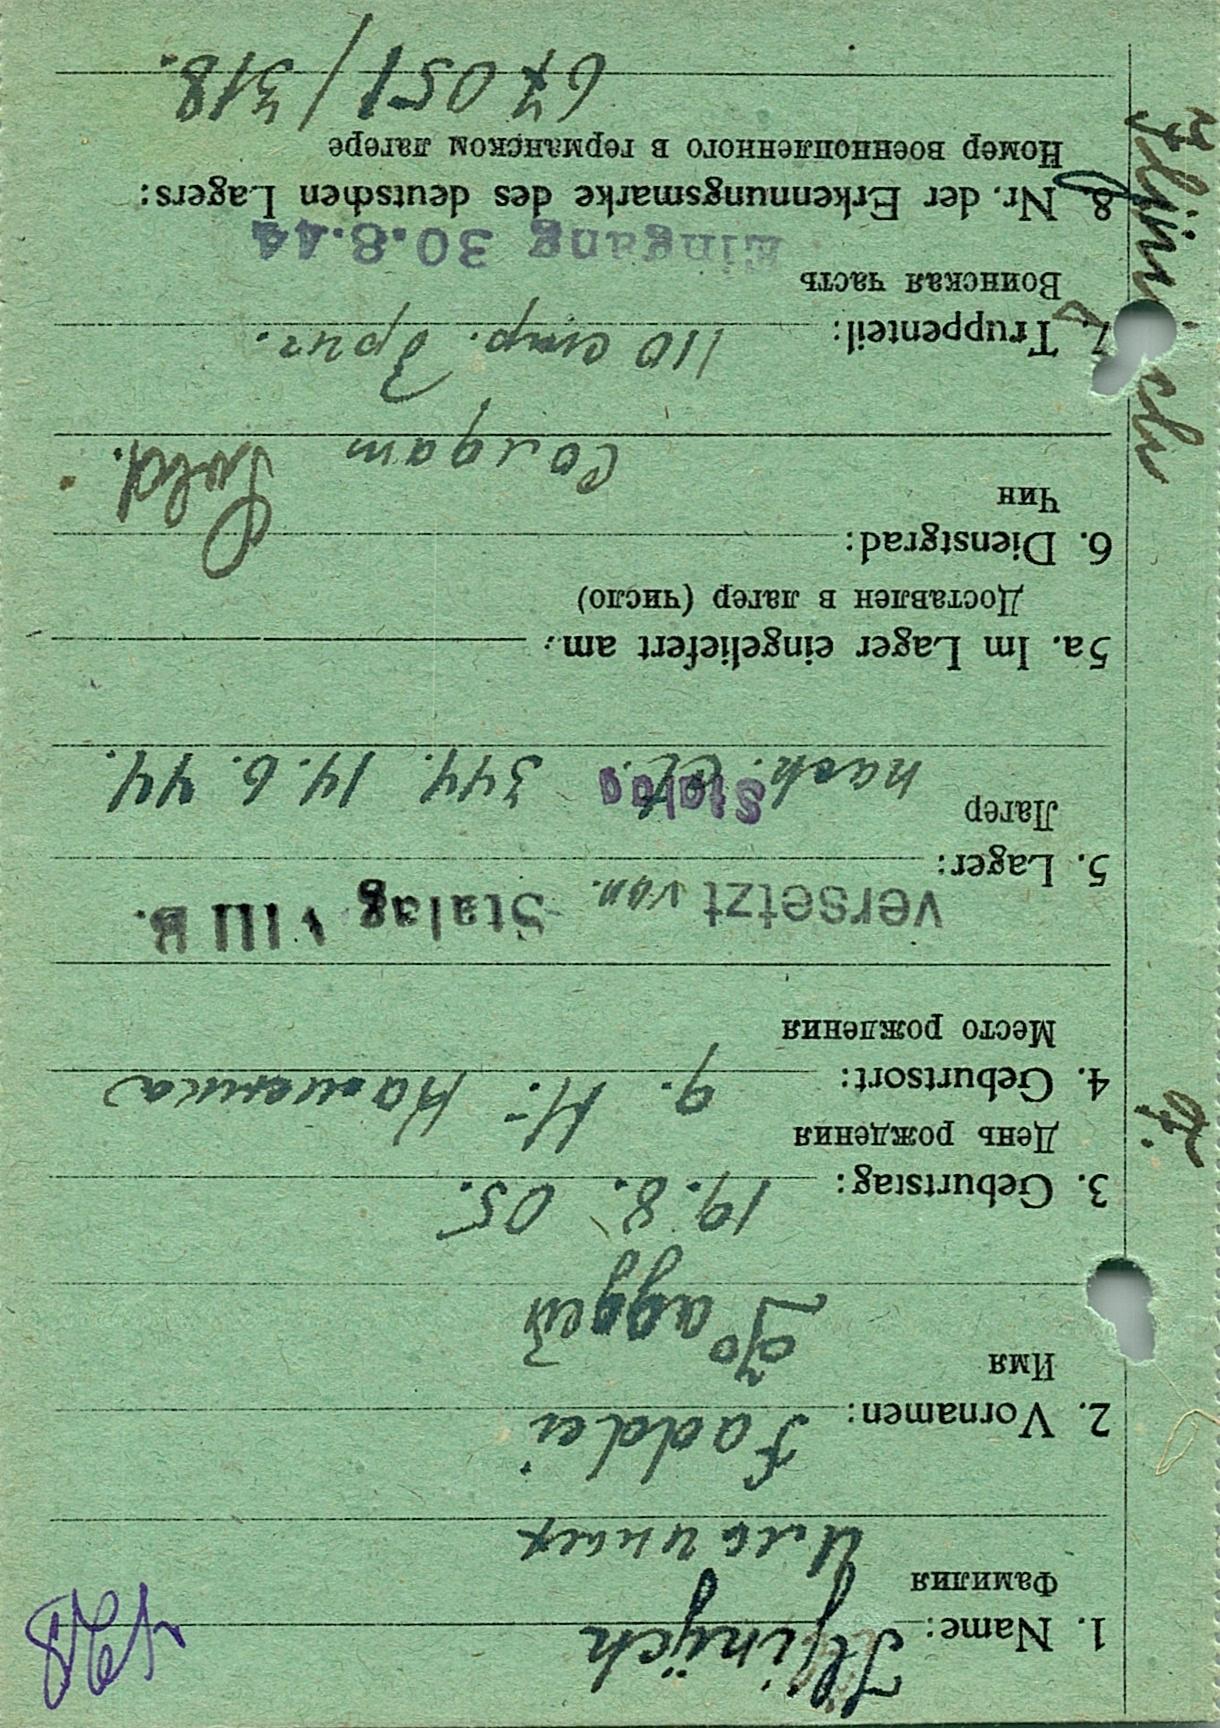 1. Name: Iljinÿch
Фамилия
Ильиных
2. Vornamen: Faddei
Имя
Фаддей
3. Geburtstag: 19. 8. 05.
День рождения
4. Geburtsort: д. Н-Каменка
Место рождения
versetzt von. Stalag VIII B.
5. Lager:
Лагер
nach. Stalag 344. 14. 6. 44.
5a. Im Lager eingeliefert am:
Доставлен в лагер (число)
6. Dienstgrad: Sold.
Чин
Солдат
7. Truppenteil: 110 стр. бриг.
Воинская часть
Eingang 30.8.44
8. Nr. der Erkennungsmarke des deutschen Lagers:
Номер военнопленного в германском лагере
67051/318.